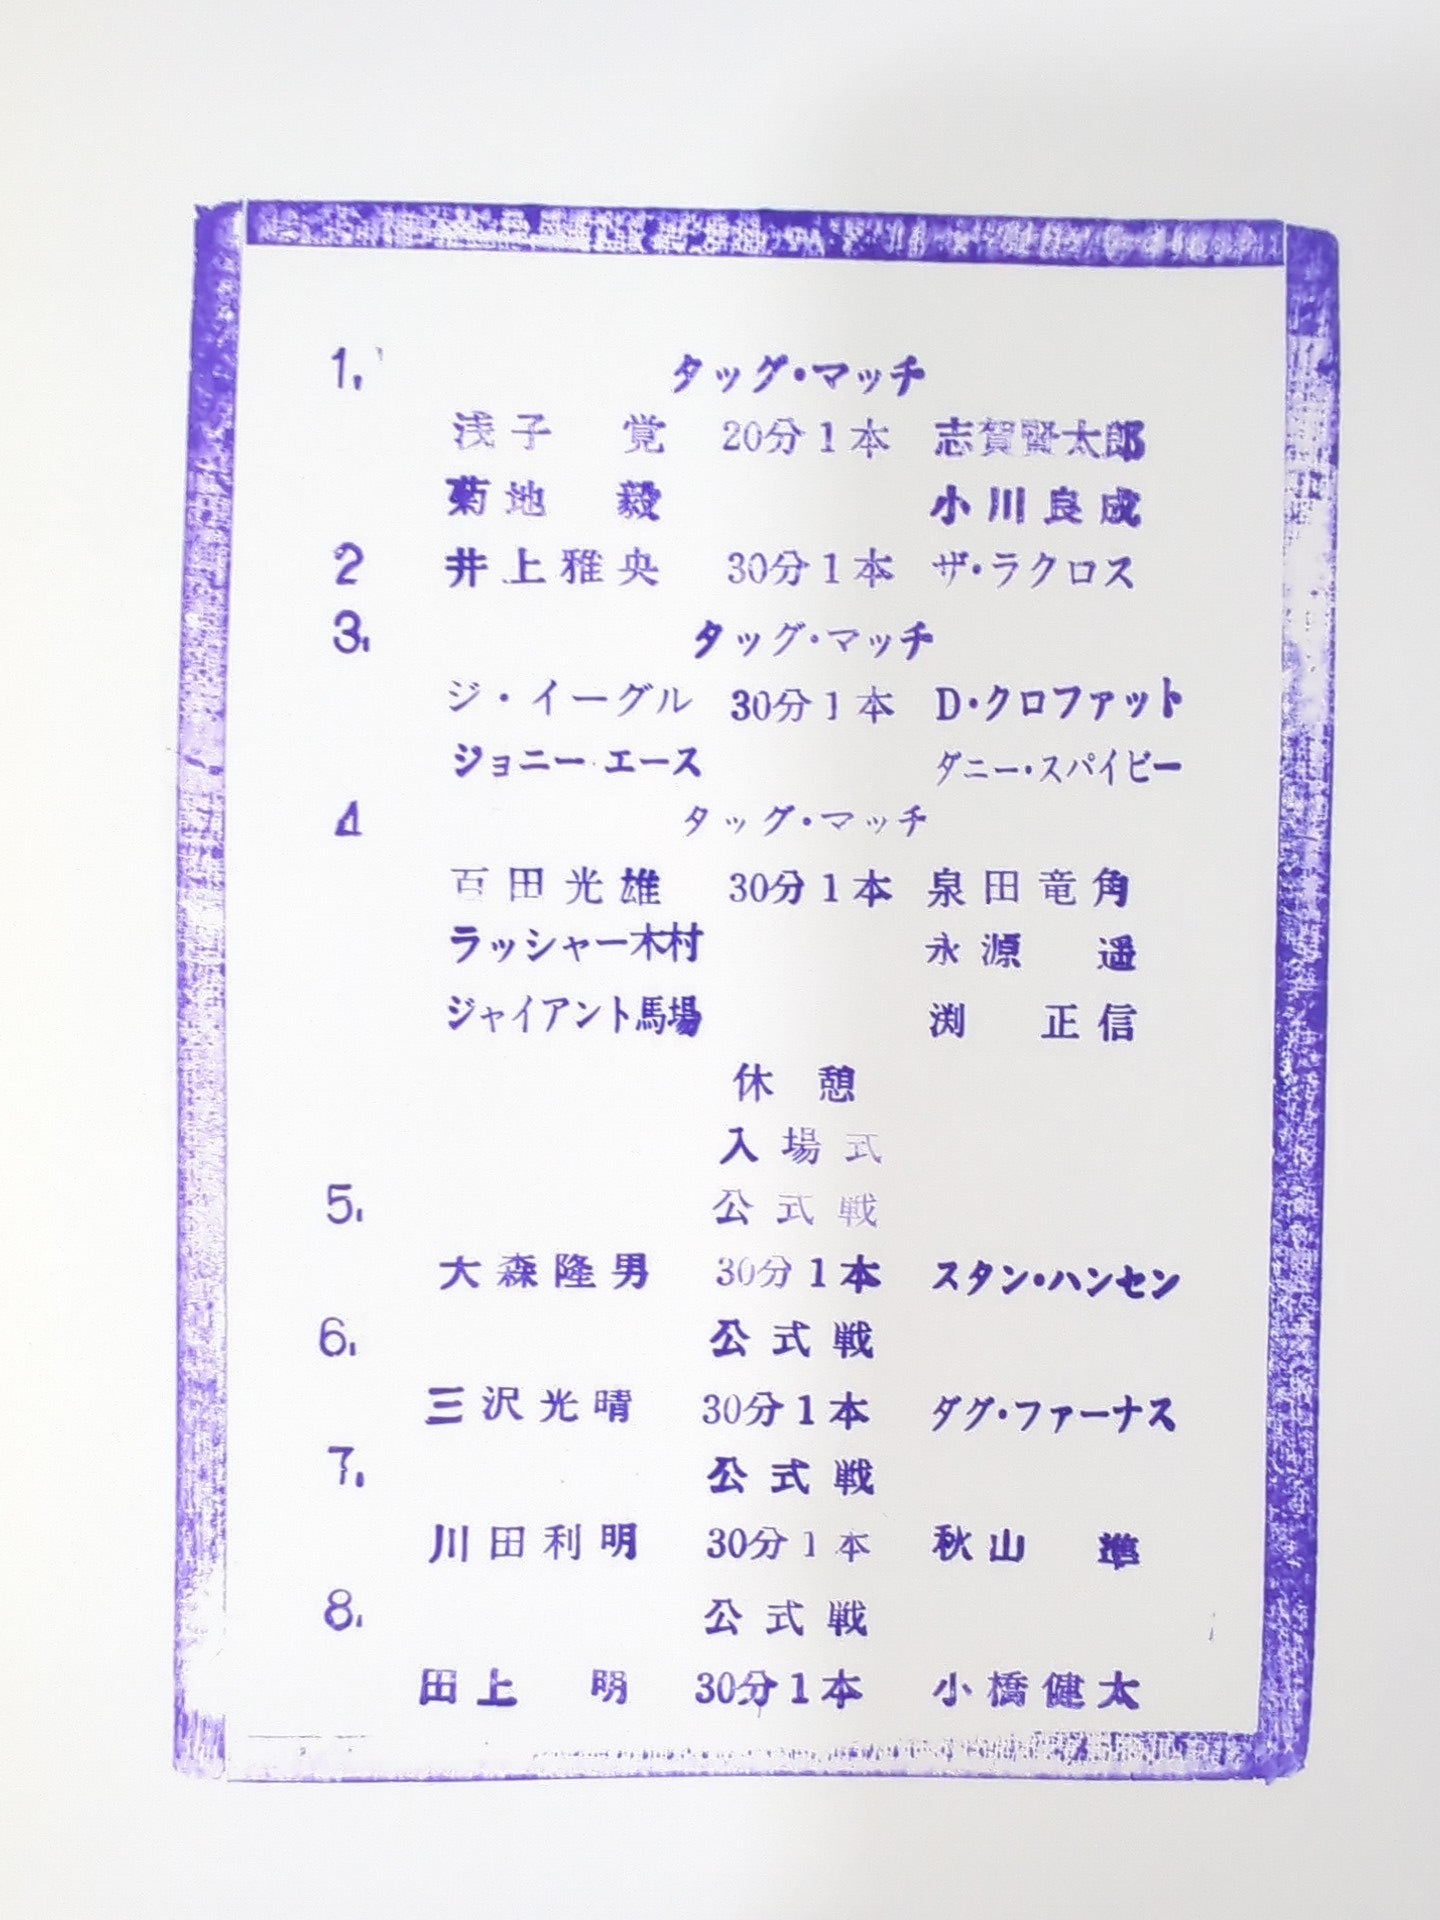 1. タッグ・マッチ
浅子 覚 20分1本 志賀賢太郎
菊地 毅 小川良成
2 井上雅央 30分1本 ザ・ラクロス
3. タッグ・マッチ
ジ・イーグル 30分1本 D・クロファット
ジョニー・エース ダニー・スパイビー
4 タッグ・マッチ
百田光雄 30分1本 泉田竜角
ラッシャー木村 永源 遥
ジャイアント馬場 渕 正信
休憩
入場式
5. 公式戦
大森隆男 30分1本 スタン・ハンセン
6. 公式戦
三沢光晴 30分1本 ダグ・ファーナス
7. 公式戦
川田利明 30分1本 秋山 準
8. 公式戦
田上 明 30分1本 小橋健太